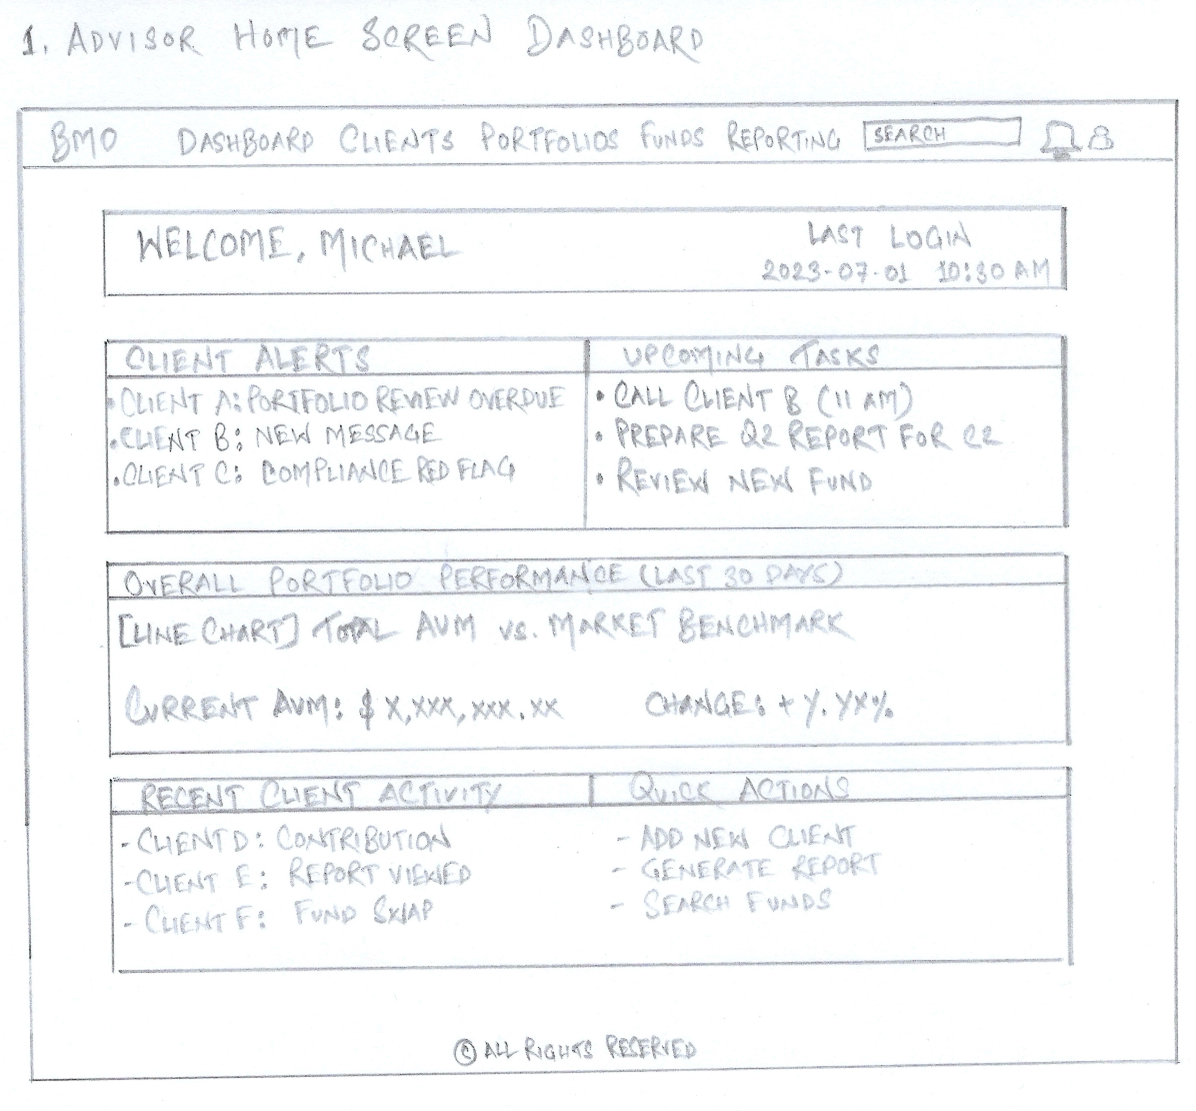 1. ADVISOR HOME SCREEN DASHBOARD
BMO DASHBOARD CLIENTS PORTFOLIOS FUNDS REPORTING SEARCH
WELCOME, MICHAEL
LAST LOGIN
2023-07-01 10:30 AM
CLIENT ALERTS
• CLIENT A: PORTFOLIO REVIEW OVERDUE
• CLIENT B: NEW MESSAGE
• CLIENT C: COMPLIANCE RED FLAG
UPCOMING TASKS
• CALL CLIENT B (11 AM)
• PREPARE Q2 REPORT FOR C2
• REVIEW NEW FUND
OVERALL PORTFOLIO PERFORMANCE (LAST 30 DAYS)
[LINE CHART] TOTAL AUM vs. MARKET BENCHMARK
CURRENT AUM: $ X,XXX,XXX.XX CHANGE: + Y.YX%
RECENT CLIENT ACTIVITY
- CLIENT D: CONTRIBUTION
- CLIENT E: REPORT VIEWED
- CLIENT F: FUND SWAP
QUICK ACTIONS
- ADD NEW CLIENT
- GENERATE REPORT
- SEARCH FUNDS
© ALL RIGHTS RESERVED